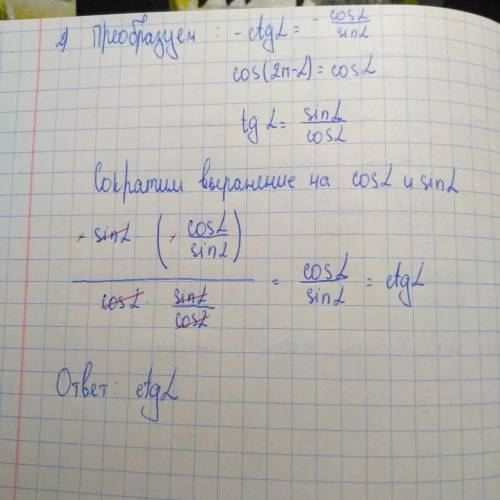 2) Преобразуем: -ctgL = - cosL/sinL
cos(2π-L) = cosL
tgL = sinL/cosL
Сократим выражение на cosL и sinL
- sinL · (- cosL/sinL) / cosL · sinL/cosL = cosL/sinL = ctgL
Ответ: ctgL